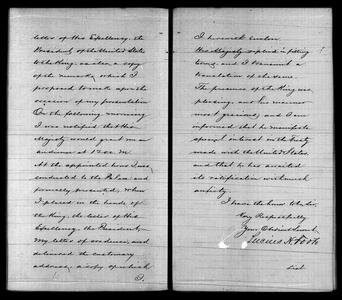 letter of His Excellency, the
President of the United States
to the King, as also a copy
of the remarks, which I
proposed to make upon the
occasion of my presentation
On the following morning
I was notified that His
Majesty would grant me an
audience at 12.00 M.
At the appointed hour I was
conducted to the Palace and
formally presented, when
I placed in the hands of
the King, the letter of His
Excellency, the President,
my letter of credence, and
delivered the customary
address, a copy of which
I
I herewith enclose
His Majesty replied in fitting
terms, and I transmit a
translation of the same.
The presence of the King was
pleasing, and his manner
most gracious, and I am
informed that he manifests
special interest in the Treaty
made with the United States,
and that he has awaited
its ratification with much
anxiety.
I have the honor to be Sir,
Very Respectfully
Your Obedient Servant,
Lucius H. Foote
List